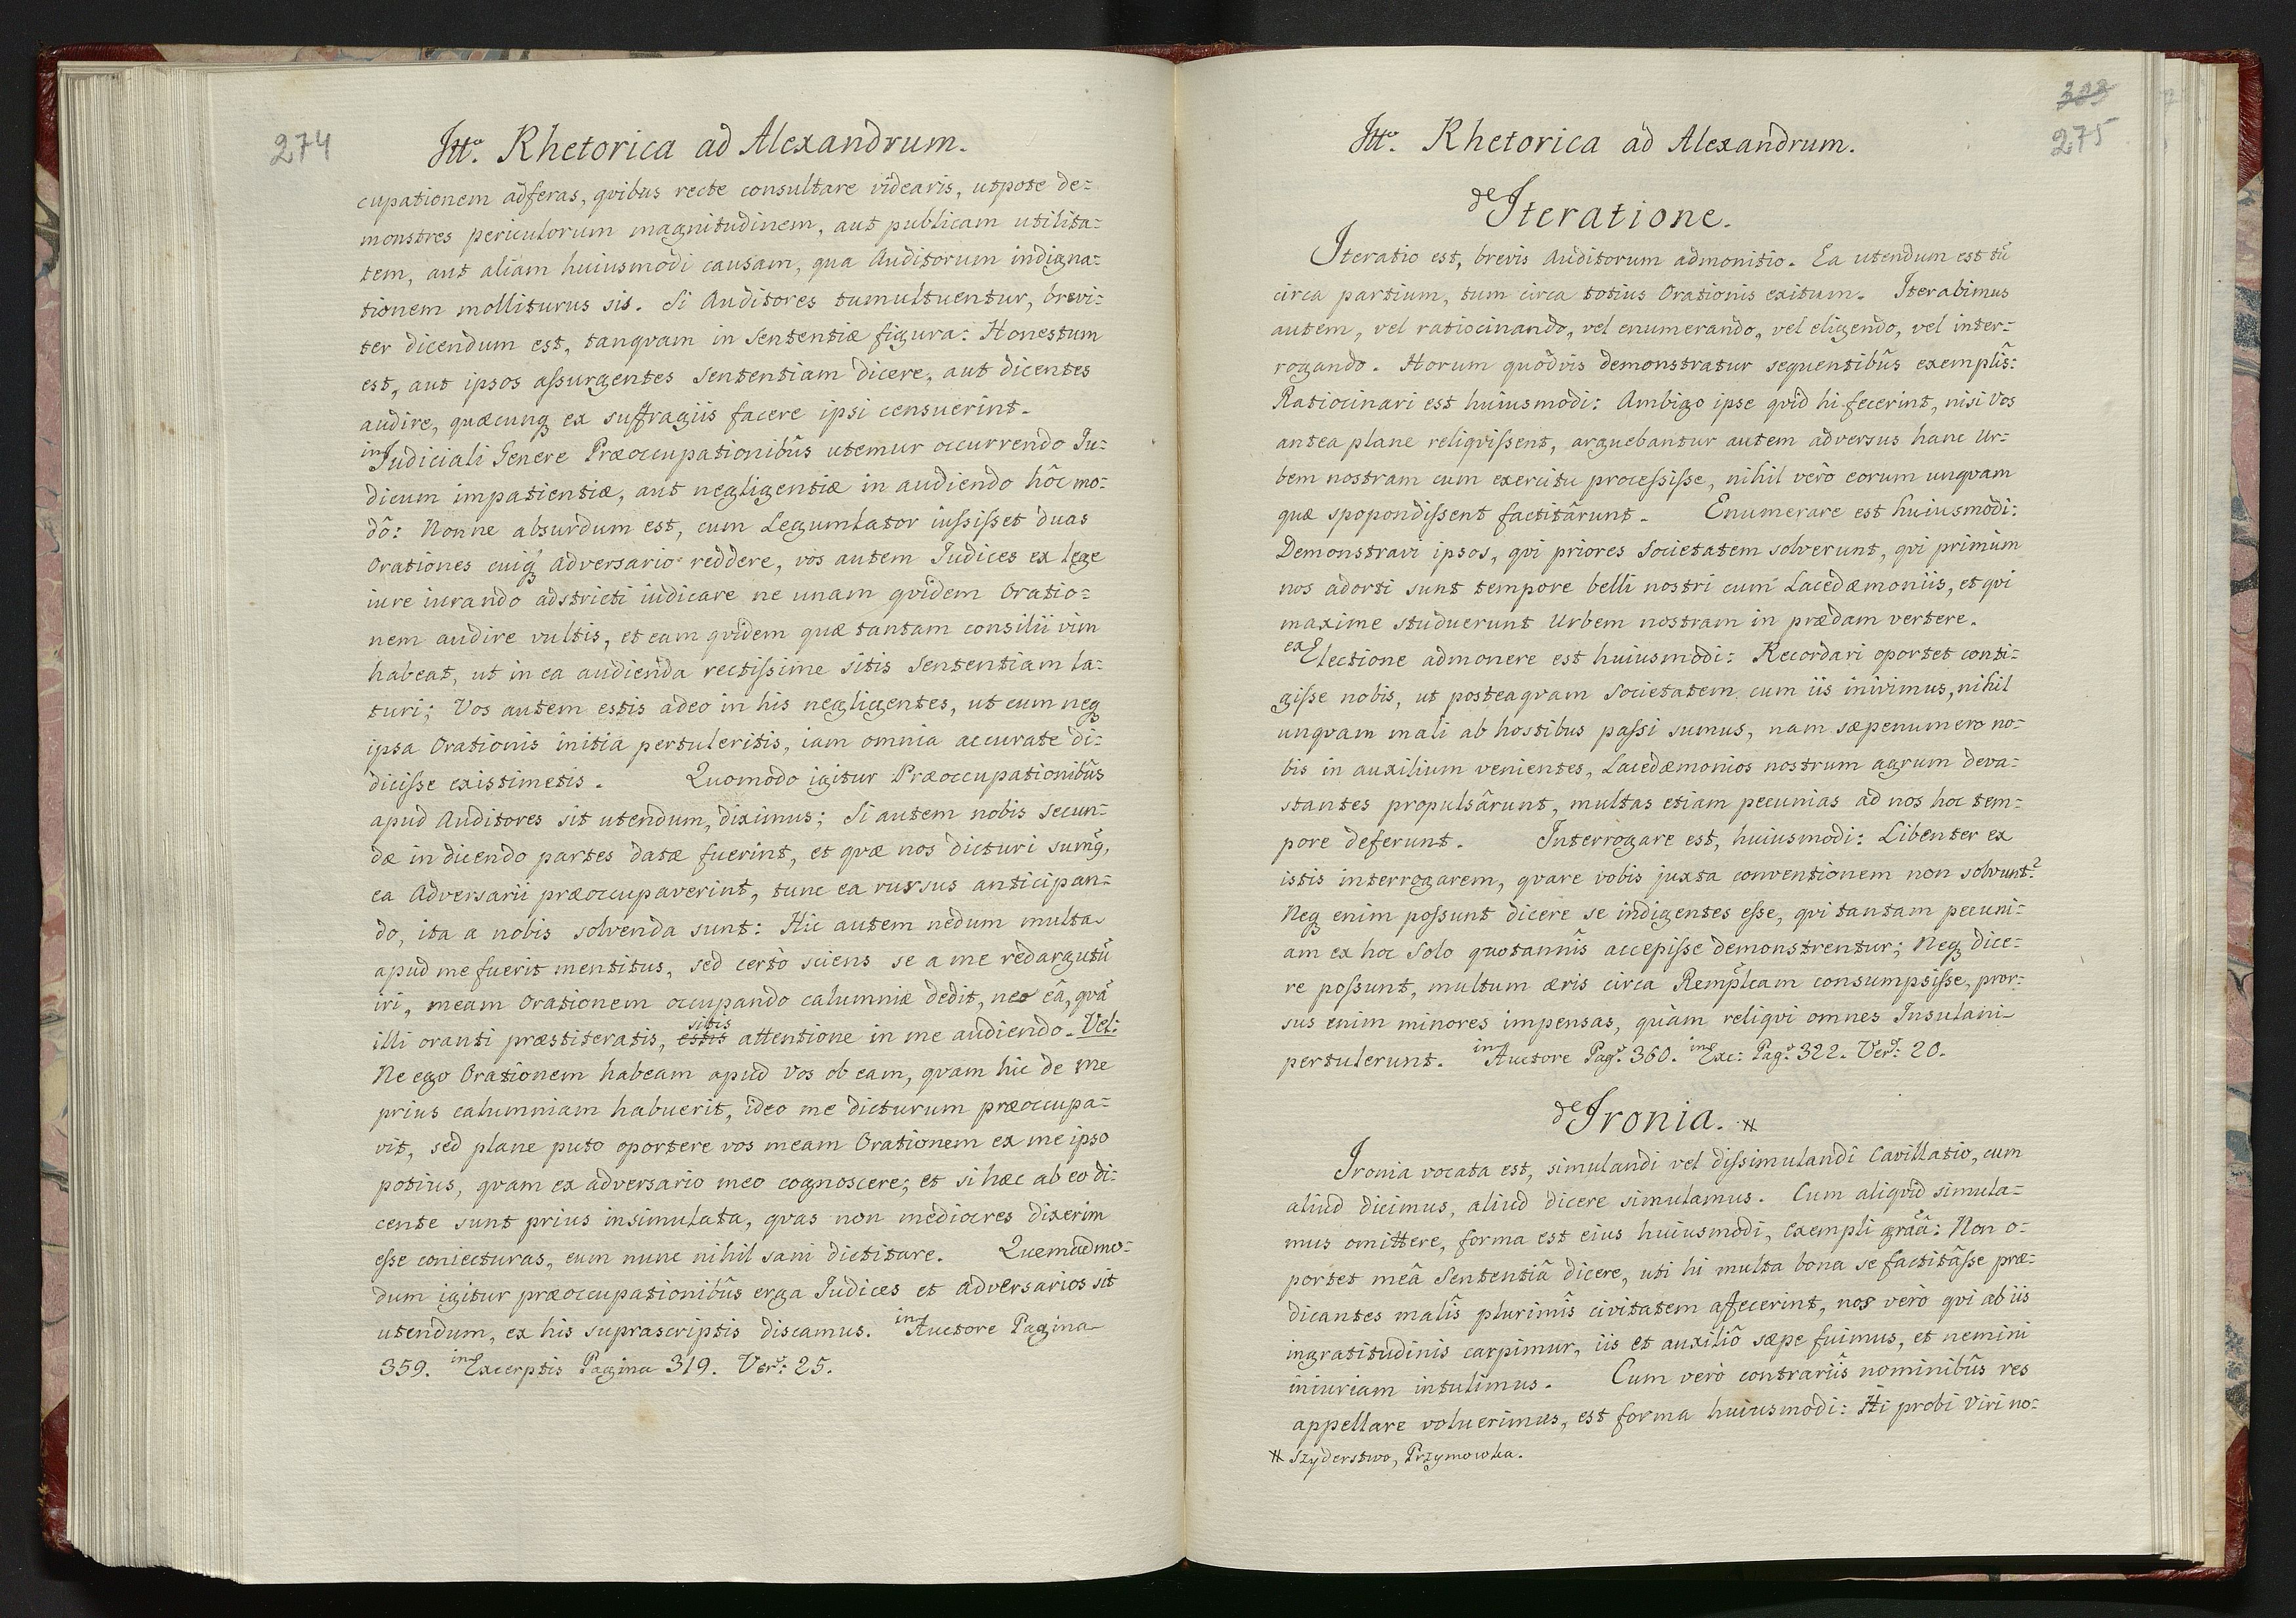 274
Itt.º Rhetorica ad Alexandrum.
cupationem adferas, qvibus recte consultare videaris, utpote de=
monstres periculorum magnitudinem, aut publicam utilita=
tem, aut aliam huiusmodi causam, qua Auditorum indigna=
tionem molliturus sis. Si Auditores tumultuentur, brevi=
ter dicendum est, tanqvam in Sententiæ figura: Honestum
est, aut ipsos assurgentes Sententiam dicere, aut dicentes
audire, quæcunq ex suffragiis facere ipsi censuerint.
in Iudiciali Genere Præoccupationibûs utemur occurrendo Iu=
dicum impatientiæ, aut negligentiæ in audiendo hôc mo=
dô: Nonne absurdum est, cum Legumlator iussisset duas
Orationes cuiq Adversario reddere, vos autem Iudices ex lege
iure iurando adstricti iudicare ne unam qvidem Oratio=
nem audire vultis, et eam qvidem quæ tantam consilii vim
habeat, ut in ea audienda rectissime sitis Sententiam la=
turi; Vos autem estis adeo in his negligentes, ut cum neq
ipsa Orationis initia pertuleritis, iam omnia accurate di=
dicisse existimetis. Quomodo igitur Præoccupationibûs
apud Auditores sit utendum, diximus; Si autem nobis secun=
dæ in dicendo partes datæ fuerint, et qvæ nos dicturi sumq,
ea Adversarii præoccupaverint, tunc ea rursus anticipan=
do, ita a nobis solvenda sunt: Hic autem nedum multa
apud me fuerit mentitus, sed certò sciens se a me redargutũ
iri, meam Orationem occupando calumniæ dedit, neo eâ, qvâ
illi oranti præstiteratis, estis sitis attentione in me audiendo. Vel:
Ne ego Orationem habeam apud Vos ob eam, qvam hic de me
prius calumniam habuerit, ideo me dicturum præoccupa=
vit, sed plane puto oportere vos meam Orationem ex me ipso
potius, qvam ex adversario meo cognoscere; et si hæc ab eo di=
cente sunt prius insimulata, qvas non mediocres dixerim
esse coniecturas, eum nunc nihil sani dictitare. Quemadmo=
dum igitur præoccupationibûs erga Iudices et adversarios sit
utendum, ex his suprascriptis discamus. in Auctore Pagina
359. in Excerptis Pagina 319. Vers: 25.
303
275
Itt.º Rhetorica ad Alexandrum.
de Iteratione.
Iteratio est, brevis Auditorum admonitio. Ea utendum est tũ
circa partium, tum circa totius Orationis exitum. Iterabimus
autem, vel ratiocinando, vel enumerando, vel eligendo, vel inter=
rogando. Horum quodvis demonstratur sequentibûs exemplîs:
Ratiocinari est huiusmodi: Ambigo ipse qvid hi fecerint, nisi Vos
antea plane reliqvissent, arguebantur autem adversus hanc Ur=
bem nostram cum exercitu processisse, nihil verò eorum unqvam
quæ spopondissent factitârunt. Enumerare est huiusmodi:
Demonstravi ipsos, qvi priores Societatem solverunt, qvi primùm
nos adorti sunt tempore belli nostri cum Lacedæmoniis, et qvi
maxime studuerunt Urbem nostram in prædam vertere.
ex Electione admonere est huiusmodi: Recordari oportet conti=
gisse nobis, ut posteaqvam Societatem cum iis inivimus, nihil
unqvam mali ab hostibus passi sumus, nam sæpenumero no=
bis in auxilium venientes, Lacedæmonios nostrum agrum deva=
stantes propulsârunt, multas etiam pecunias ad nos hoc tem=
pore deferunt. Interrogare est, huiusmodi: Libenter ex
istis interrogarem, qvare vobis juxta conventionem non solvunt?
Neq enim possunt dicere se indigentes esse, qvi tantam pecuni=
am ex hoc Solo quotannîs accepisse demonstrentur; Neq dice=
re possunt, multum æris circa Remplcam consumpsisse, pror=
sus enim minores impensas, qvàm reliqvi omnes Insulani
pertulerunt. in Auctore Pagª 360. in Exc: Pagª 322. Vers: 20.
de Ironia. #
Ironia vocata est, simulandi vel dissimulandi Cavillatio, cum
aliud dicimus, aliud dicere simulamus. Cum aliqvid simula=
mus omittere, forma est eius huiusmodi, exempli grãâ: Non o=
portet meâ Sententiâ dicere, uti hi multa bona se factitâsse præ=
dicantes malîs plurimîs civitatem affecerint, nos verò qvi ab iis
ingratitudinis carpimur, iis et auxiliô sæpe fuimus, et nemini
iniuriam intulimus. Cum verò contrariîs nominibûs res
appellare voluerimus, est forma huiusmodi: Hi probi Viri no=
# Szyderstwo, Przymowka.